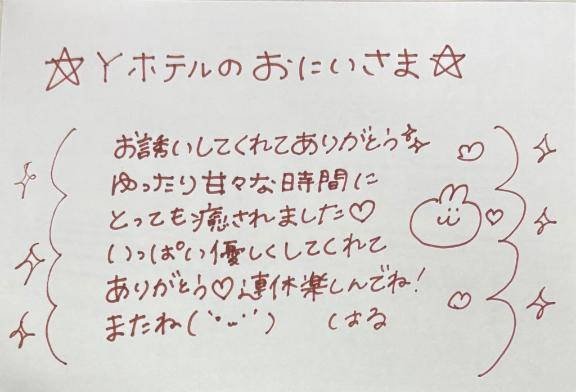 ☆Yホテルのおにいさま☆
お誘いしてくれてありがとう
ゆったり甘々な時間に
とっても癒されました♡
いっぱい優しくしてくれて
ありがとう♡連休楽しんでね!
またね(˙ᵕ˙) はる